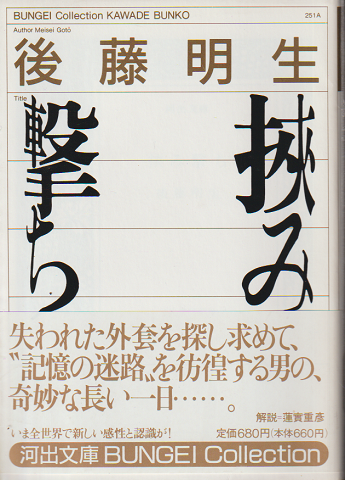 BUNGEI Collection KAWADE BUNKO
251A
Author Meisei Gotō
後藤明生
Title
挾み
撃ち
失われた外套を探し求めて、
〝記憶の迷路〟を彷徨する男の、
奇妙な長い一日……。
解説=蓮實重彦
〝いま全世界で新しい感性と認識が!
定価680円(本体660円)
河出文庫 BUNGEI Collection